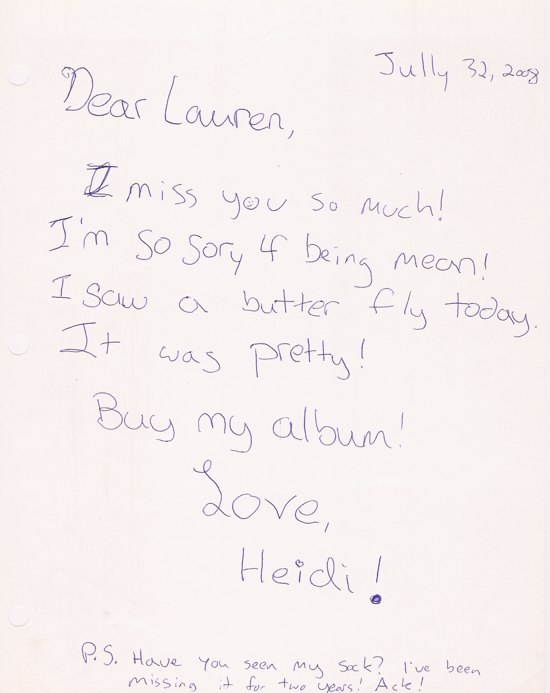 Jully 32, 2008
Dear Lauren,
I miss you so much!
I'm so sory 4 being mean!
I saw a butter fly today.
It was pretty!
Buy my album!
Love,
Heidi!
P.S. Have you seen my sock? I've been
missing it for two years! Ack!